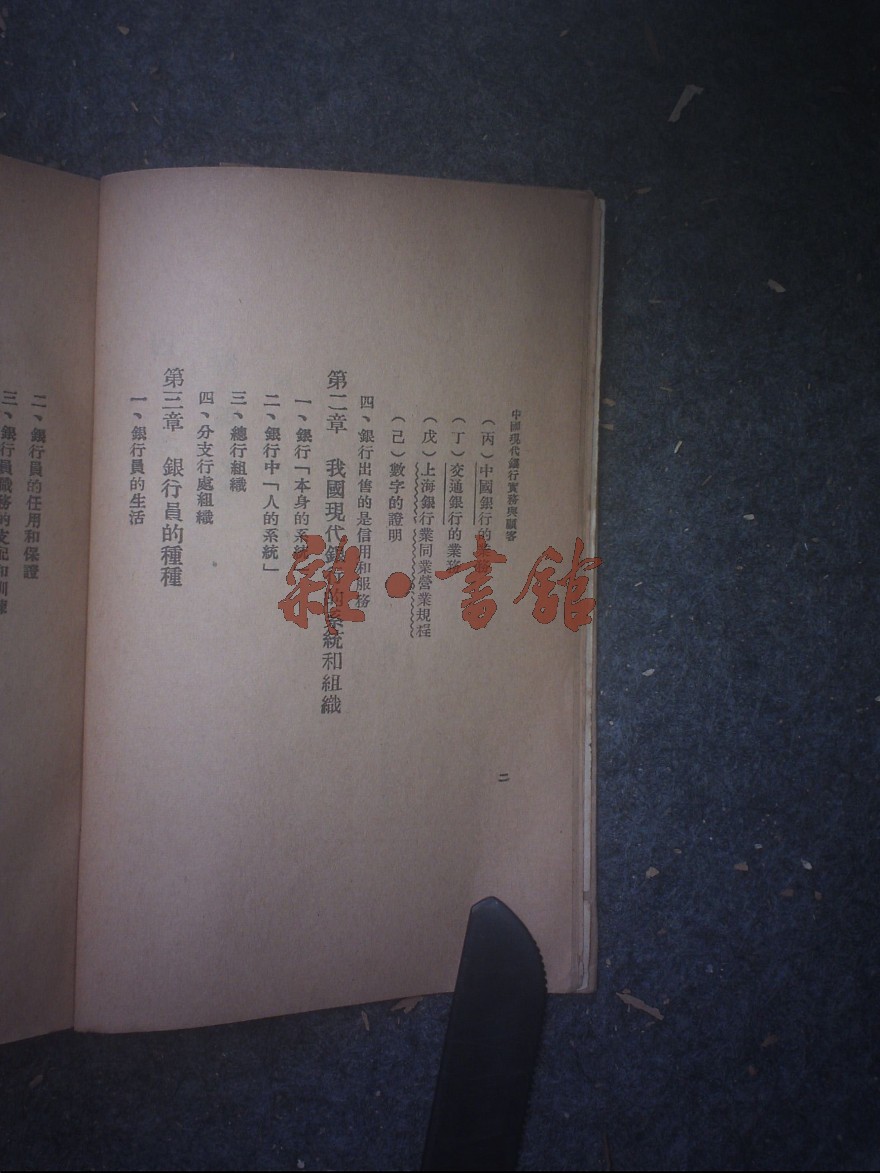 中國現代銀行實務與顧客
二
（丙）中國銀行的業務
（丁）交通銀行的業務
（戊）上海銀行業同業營業規程
（己）數字的證明
四、銀行出售的是信用和服務
第二章　我國現代銀行的系統和組織
一、銀行「本身的系統」
二、銀行中「人的系統」
三、總行組織
四、分支行處組織
第三章　銀行員的種種
一、銀行員的生活
二、銀行員的任用和保證
三、銀行員職務的支配和訓練
雜·書館